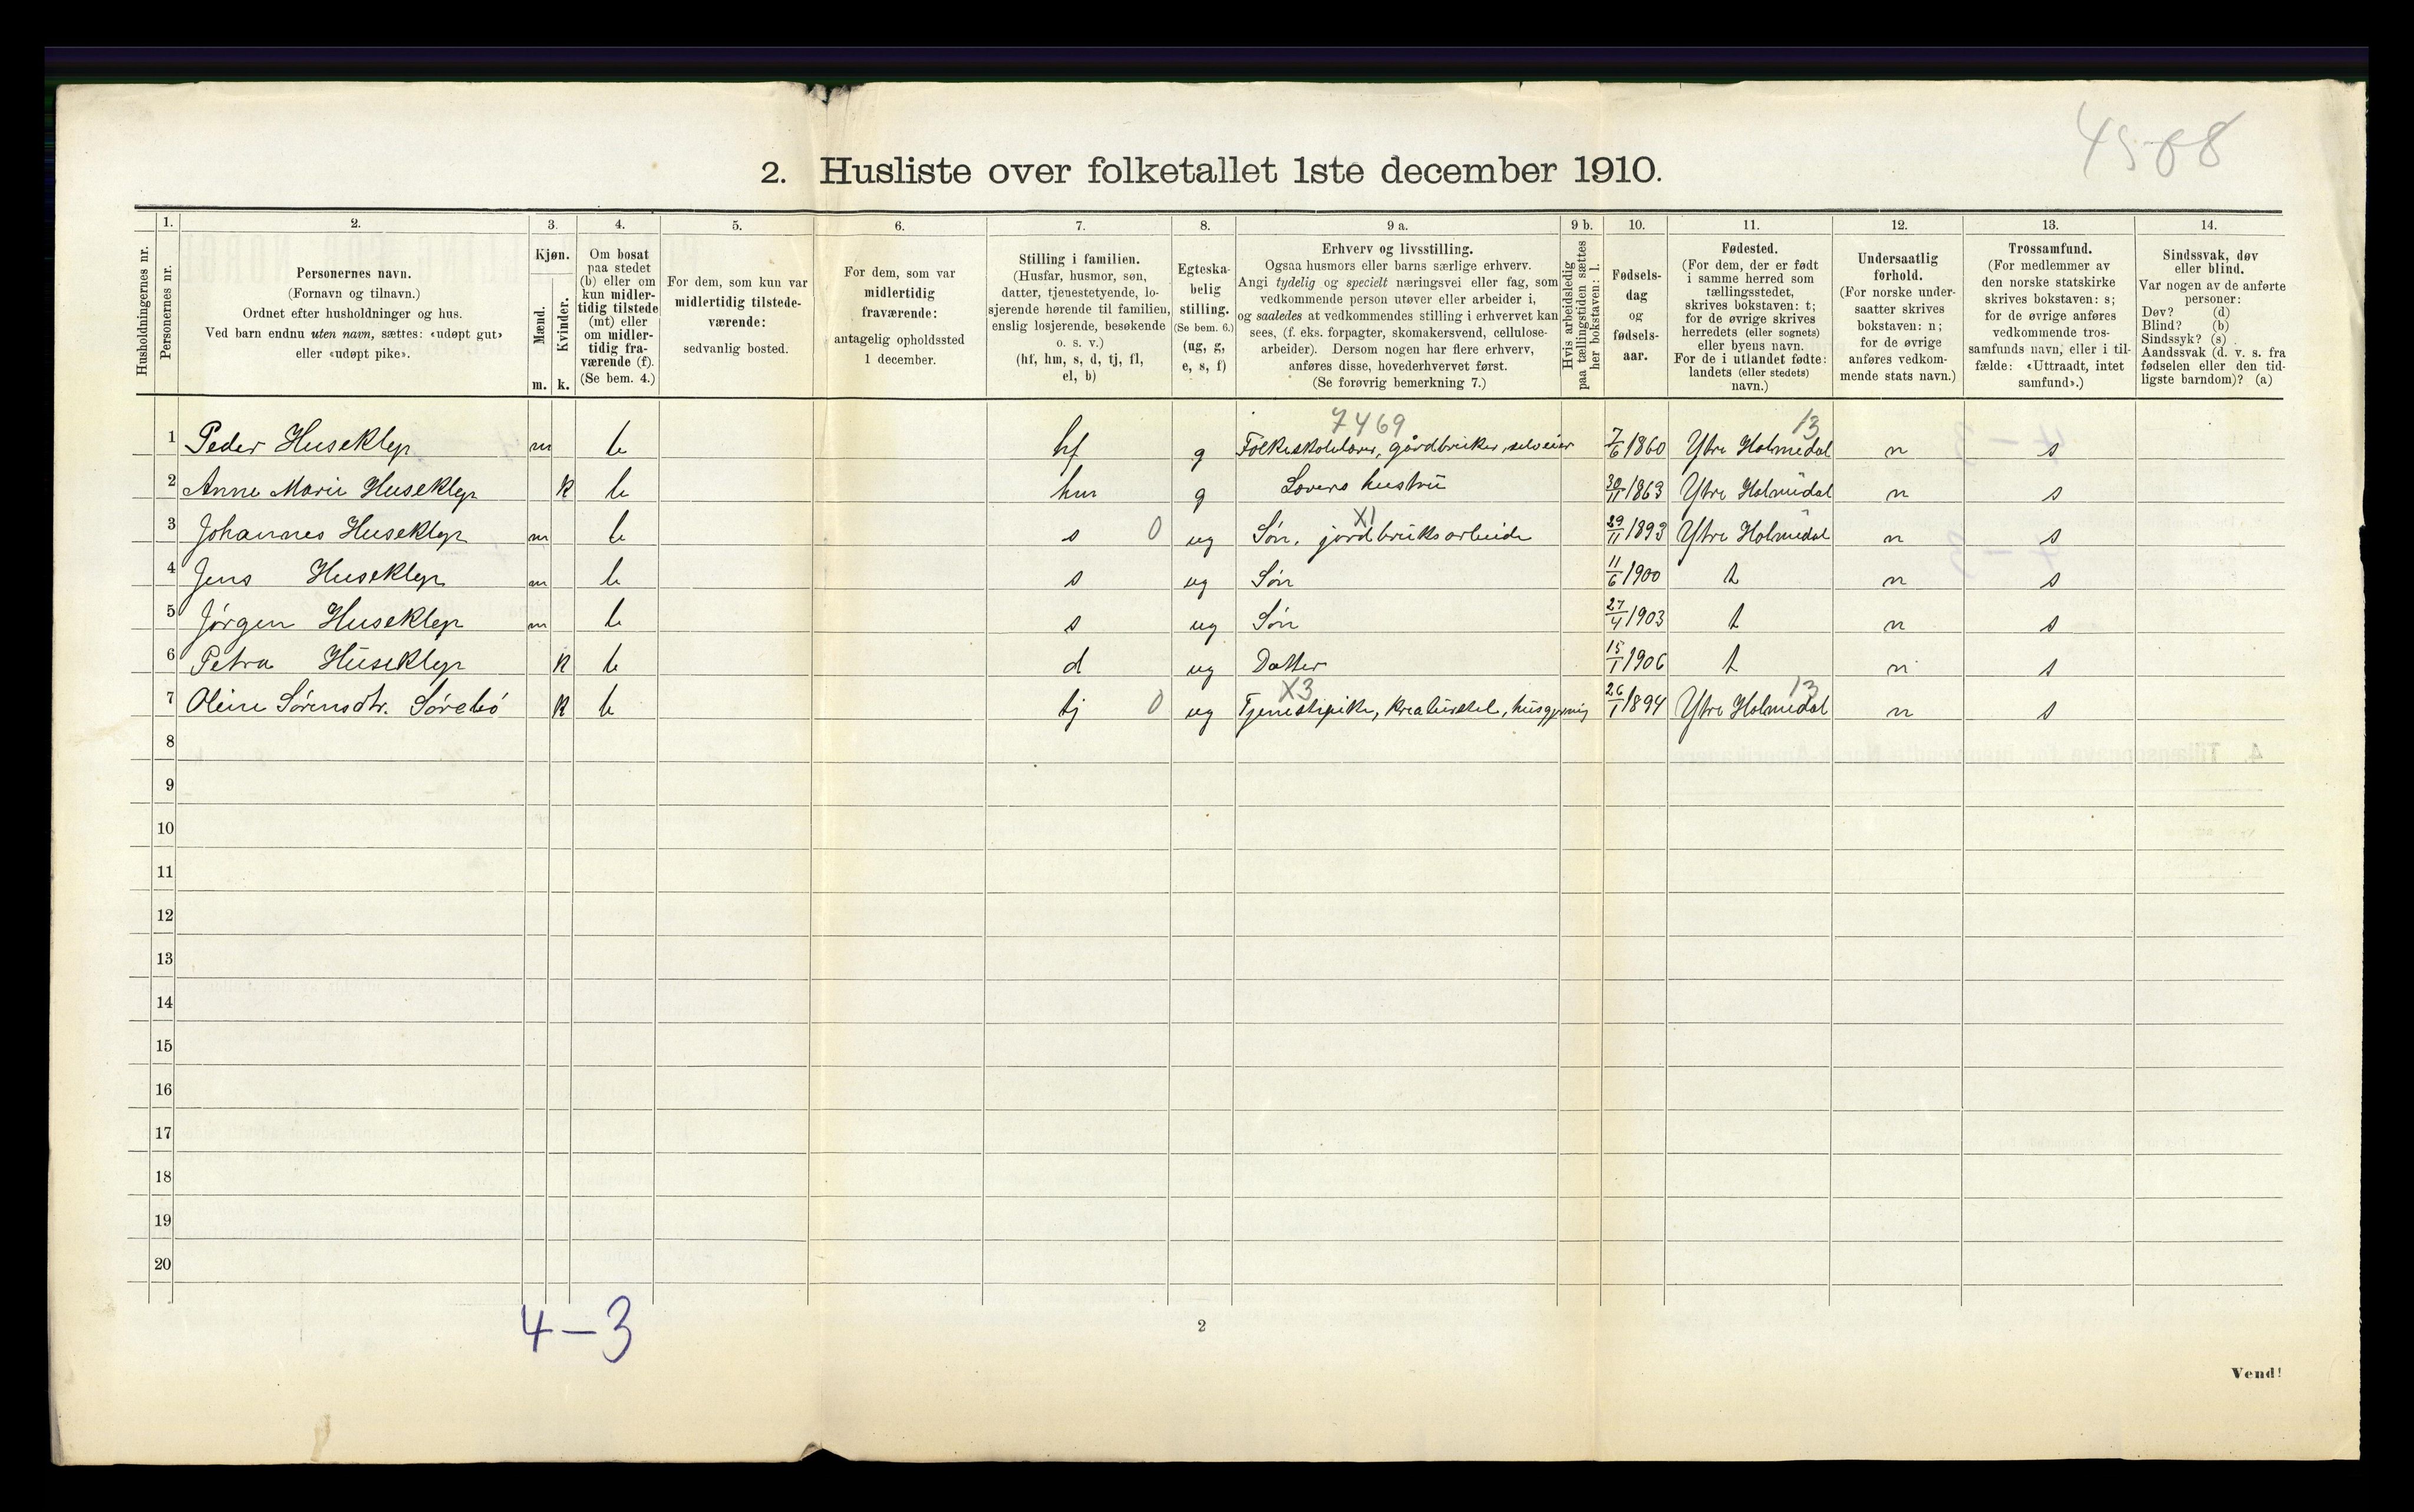 4588
2. Husliste over folketallet 1ste december 1910.
Husholdningernes nr.
1.
Personernes nr.
2.
Personernes navn.
(Fornavn og tilnavn.)
Ordnet efter husholdninger og hus.
Ved barn endnu uten navn, sættes: «udøpt gut»
eller «udøpt pike».
3.
Kjøn.
Mænd.
Kvinder.
m. k.
4.
Om bosat
paa stedet
(b) eller om
kun midler-
tidig tilstede
(mt) eller
om midler-
tidig fra-
værende (f).
(Se bem. 4.)
5.
For dem, som kun var
midlertidig tilstede-
værende:
sedvanlig bosted.
6.
For dem, som var
midlertidig
fraværende:
antagelig opholdssted
1 december.
7.
Stilling i familien.
(Husfar, husmor, søn,
datter, tjenestetyende, lo-
sjerende hørende til familien,
enslig losjerende, besøkende
o. s. v.)
(hf, hm, s, d, tj, fl,
el, b)
8.
Egteska-
belig
stilling.
(Se bem. 6.)
(ug, g,
e, s, f)
9 a.
Erhverv og livsstilling.
Ogsaa husmors eller barns særlige erhverv.
Angi tydelig og specielt næringsvei eller fag, som
vedkommende person utøver eller arbeider i,
og saaledes at vedkommendes stilling i erhvervet kan
sees, (f. eks. forpagter, skomakersvend, cellulose-
arbeider). Dersom nogen har flere erhverv,
anføres disse, hovederhvervet først.
(Se forøvrig bemerkning 7.)
9 b.
Hvis arbeidsledig
paa tællingstiden sættes
her bokstaven: l.
10.
Fødsels-
dag
og
fødsels-
aar.
11.
Fødested.
(For dem, der er født
i samme herred som
tællingsstedet,
skrives bokstaven: t;
for de øvrige skrives
herredets (eller sognets)
eller byens navn.
For de i utlandet fødte:
landets (eller stedets)
navn.)
12.
Undersaatlig
forhold.
(For norske under-
saatter skrives
bokstaven: n;
for de øvrige
anføres vedkom-
mende stats navn.)
13.
Trossamfund.
(For medlemmer av
den norske statskirke
skrives bokstaven: s;
for de øvrige anføres
vedkommende tros-
samfunds navn, eller i til-
fælde: «Uttraadt, intet
samfund».)
14.
Sindssvak, døv
eller blind.
Var nogen av de anførte
personer:
Døv? (d)
Blind? (b)
Sindssyk? (s)
Aandssvak (d. v. s. fra
fødselen eller den tid-
ligste barndom)? (a)
7469 13
1 Peder Huseklep m b hf g Folkeskolelærer, gårdbruker, selveier 7/6 1860 Ytre Holmedal n s
2 Anne Marie Huseklep k b hm g Lærers hustru 30/11 1863 Ytre Holmedal n s
X1
3 Johannes Huseklep m b s 0 ug Søn, jordbruksarbeide 29/11 1893 Ytre Holmedal n s
4 Jens Huseklep m b s ug Søn 11/6 1900 t n s
5 Jørgen Huseklep m b s ug Søn 27/4 1903 t n s
6 Petra Huseklep k b d ug Datter 15/1 1906 t n s
X3 13
7 Oline Sørensdtr. Sørebö k b tj 0 ug Tjenestepike, kreaturstel, husgjerning 26/1 1894 Ytre Holmedal n s
8
9
10
11
12
13
14
15
16
17
18
19
20
4-3
2
Vend!